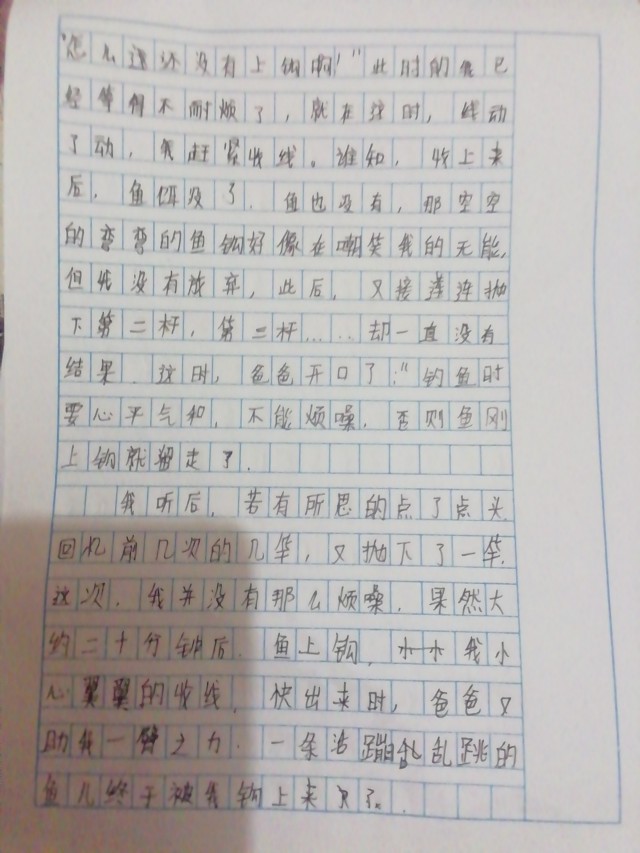 “怎么还没有上钩啊！”此时的我已
经等得不耐烦了，就在这时，线动
了动，我赶紧收线。谁知，收上来
后，鱼饵没了，鱼也没有，那空空
的弯弯的鱼钩好像在嘲笑我的无能，
但我没有放弃，此后，又接连连抛
下第二杆，第三杆……却一直没有
结果．这时，爸爸开口了：“钓鱼时
要心平气和，不能烦噪，否则鱼刚
上钩就溜走了．
我听后，若有所思的点了点头．
回忆前几次的几竿，又抛下了一竿．
这次，我并没有那么烦噪．果然大
约二十分钟后．鱼上钩，我小
心翼翼的收线．快出来时，爸爸又
助我一臂之力．一条活蹦乱乱跳的
鱼儿终于被我钩上来了。